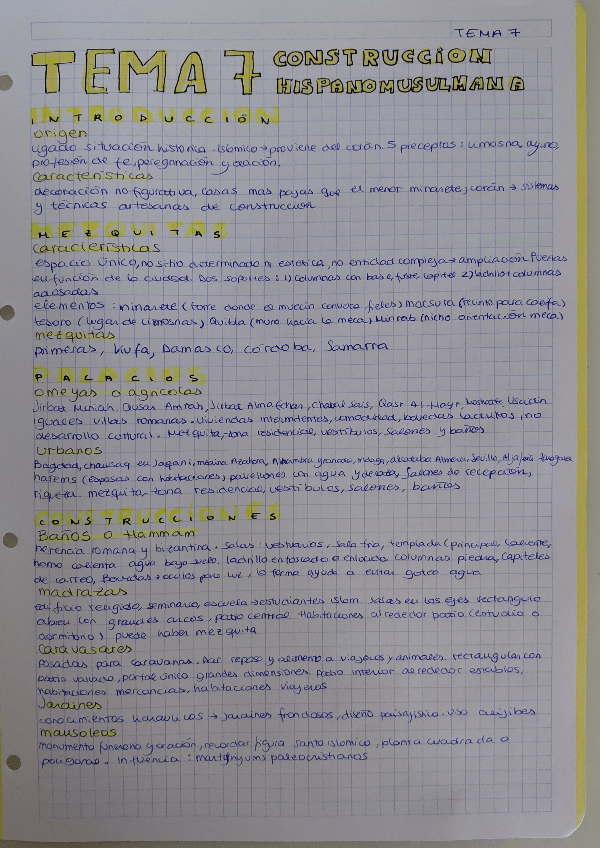 TEMA 7
TEMA 7 CONSTRUCCION
HISPANOMUSULMANA
INTRODUCCIÓN
origen
ligado situación histórica. islámico → proviene del corán 5 preceptos: limosna, ayuno,
profesión de fe, peregrinación y oración.
características
decoración no figurativa, casas mas bajas que el menor minarete, corán → sistemas
y técnicas artesanas de construcción
MEZQUITAS
características
espacio único, no sitio determinado ni estética, no entidad compleja → ampliación Puertas
en función de la ciudad. Dos soportes: 1) columnas con base, fuste, capitel 2) ladrillo + columnas
adosadas
elementos: minarete (torre donde el muecín convoca fieles) macsura (recinto para califa)
tesoro (lugar de limosnas) Quibla (muro hacia la meca) Mihrab (nicho orientación meca)
mezquitas
primeras, Kufa, Damasco, córdoba, Samarra
PALACIOS
Omeyas o agrícolas
Jirbat Minieh, Qusair Amrah, Jirbat Almafchar, Qasr Al-Hayr,
iguales villas romanas. viviendas intermitentes, comodidad, no
desarrollo cultural. Mezquita, zona residencial, vestíbulos, salones y baños
urbanos
Bagdad, medina Azahara, Alhambra granada, málaga, alcazaba Almería, Sevilla, Aljafería Zaragoza
harems (esposas con habitaciones), pabellones un agua y, salones de recepción,
riqueza. mezquita, zona residencial, vestíbulos, salones, baños
CONSTRUCCIONES
Baños o Hammam
herencia romana y bizantina. Salas: vestuarios, sala fria, templada (principal), caliente,
horno calienta agua bajo suelo, ladrillo enfoscado o enlucido columnas piedra, capiteles
de, Bovedas → oculos para luz, la forma ayuda a evitar goteo agua
madrazas
edificio religioso, seminario, escuela → estudiantes islam. salas en los ejes rectangulo
abren con grandes arcos, patio central. Habitaciones alrededor patio (estudio o
dormitorio) puede haber mezquita
caravasares
posadas para caravanas. Dar reposo y alimento a viajeros y animales. rectangular con
patio vallado, portal único grandes dimensiones, patio interior alrededor establos,
habitaciones mercancias, habitaciones viajeros
Jardines
conocimientos hidraulicos → jardines frondosos, diseño paisajistico. uso aljibes
mausoleos
monumento funerario y oración, recordar figura santo islamico, planta cuadrada o
poligonal. Influencia: martyriums paleocristianos